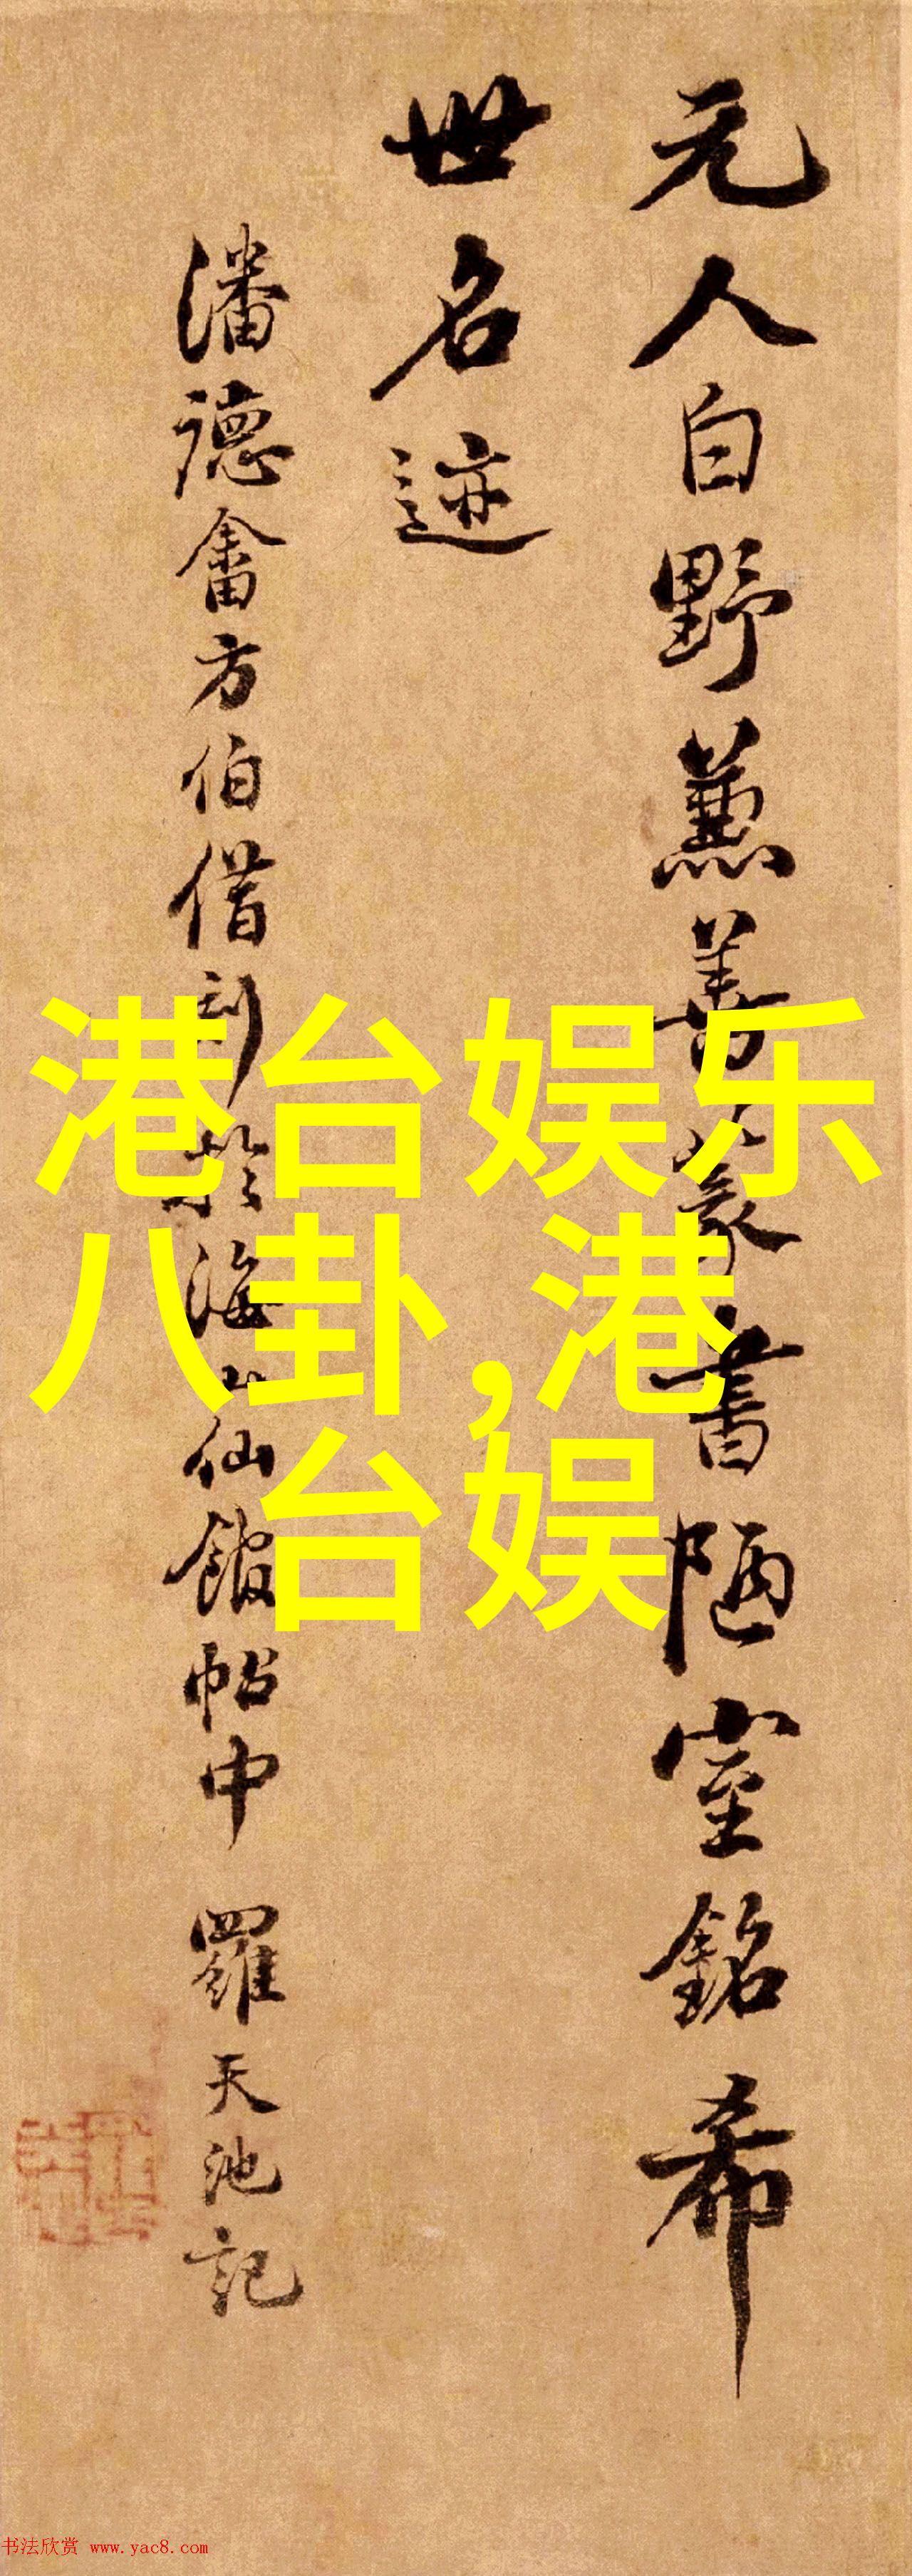 元人白野兼善篆書陋室銘希
世名迹
潘德畬方伯借刻於海山仙館帖中 羅天池記
港台娱乐
八卦,港
台娱
书法欣赏 www.yac8.com